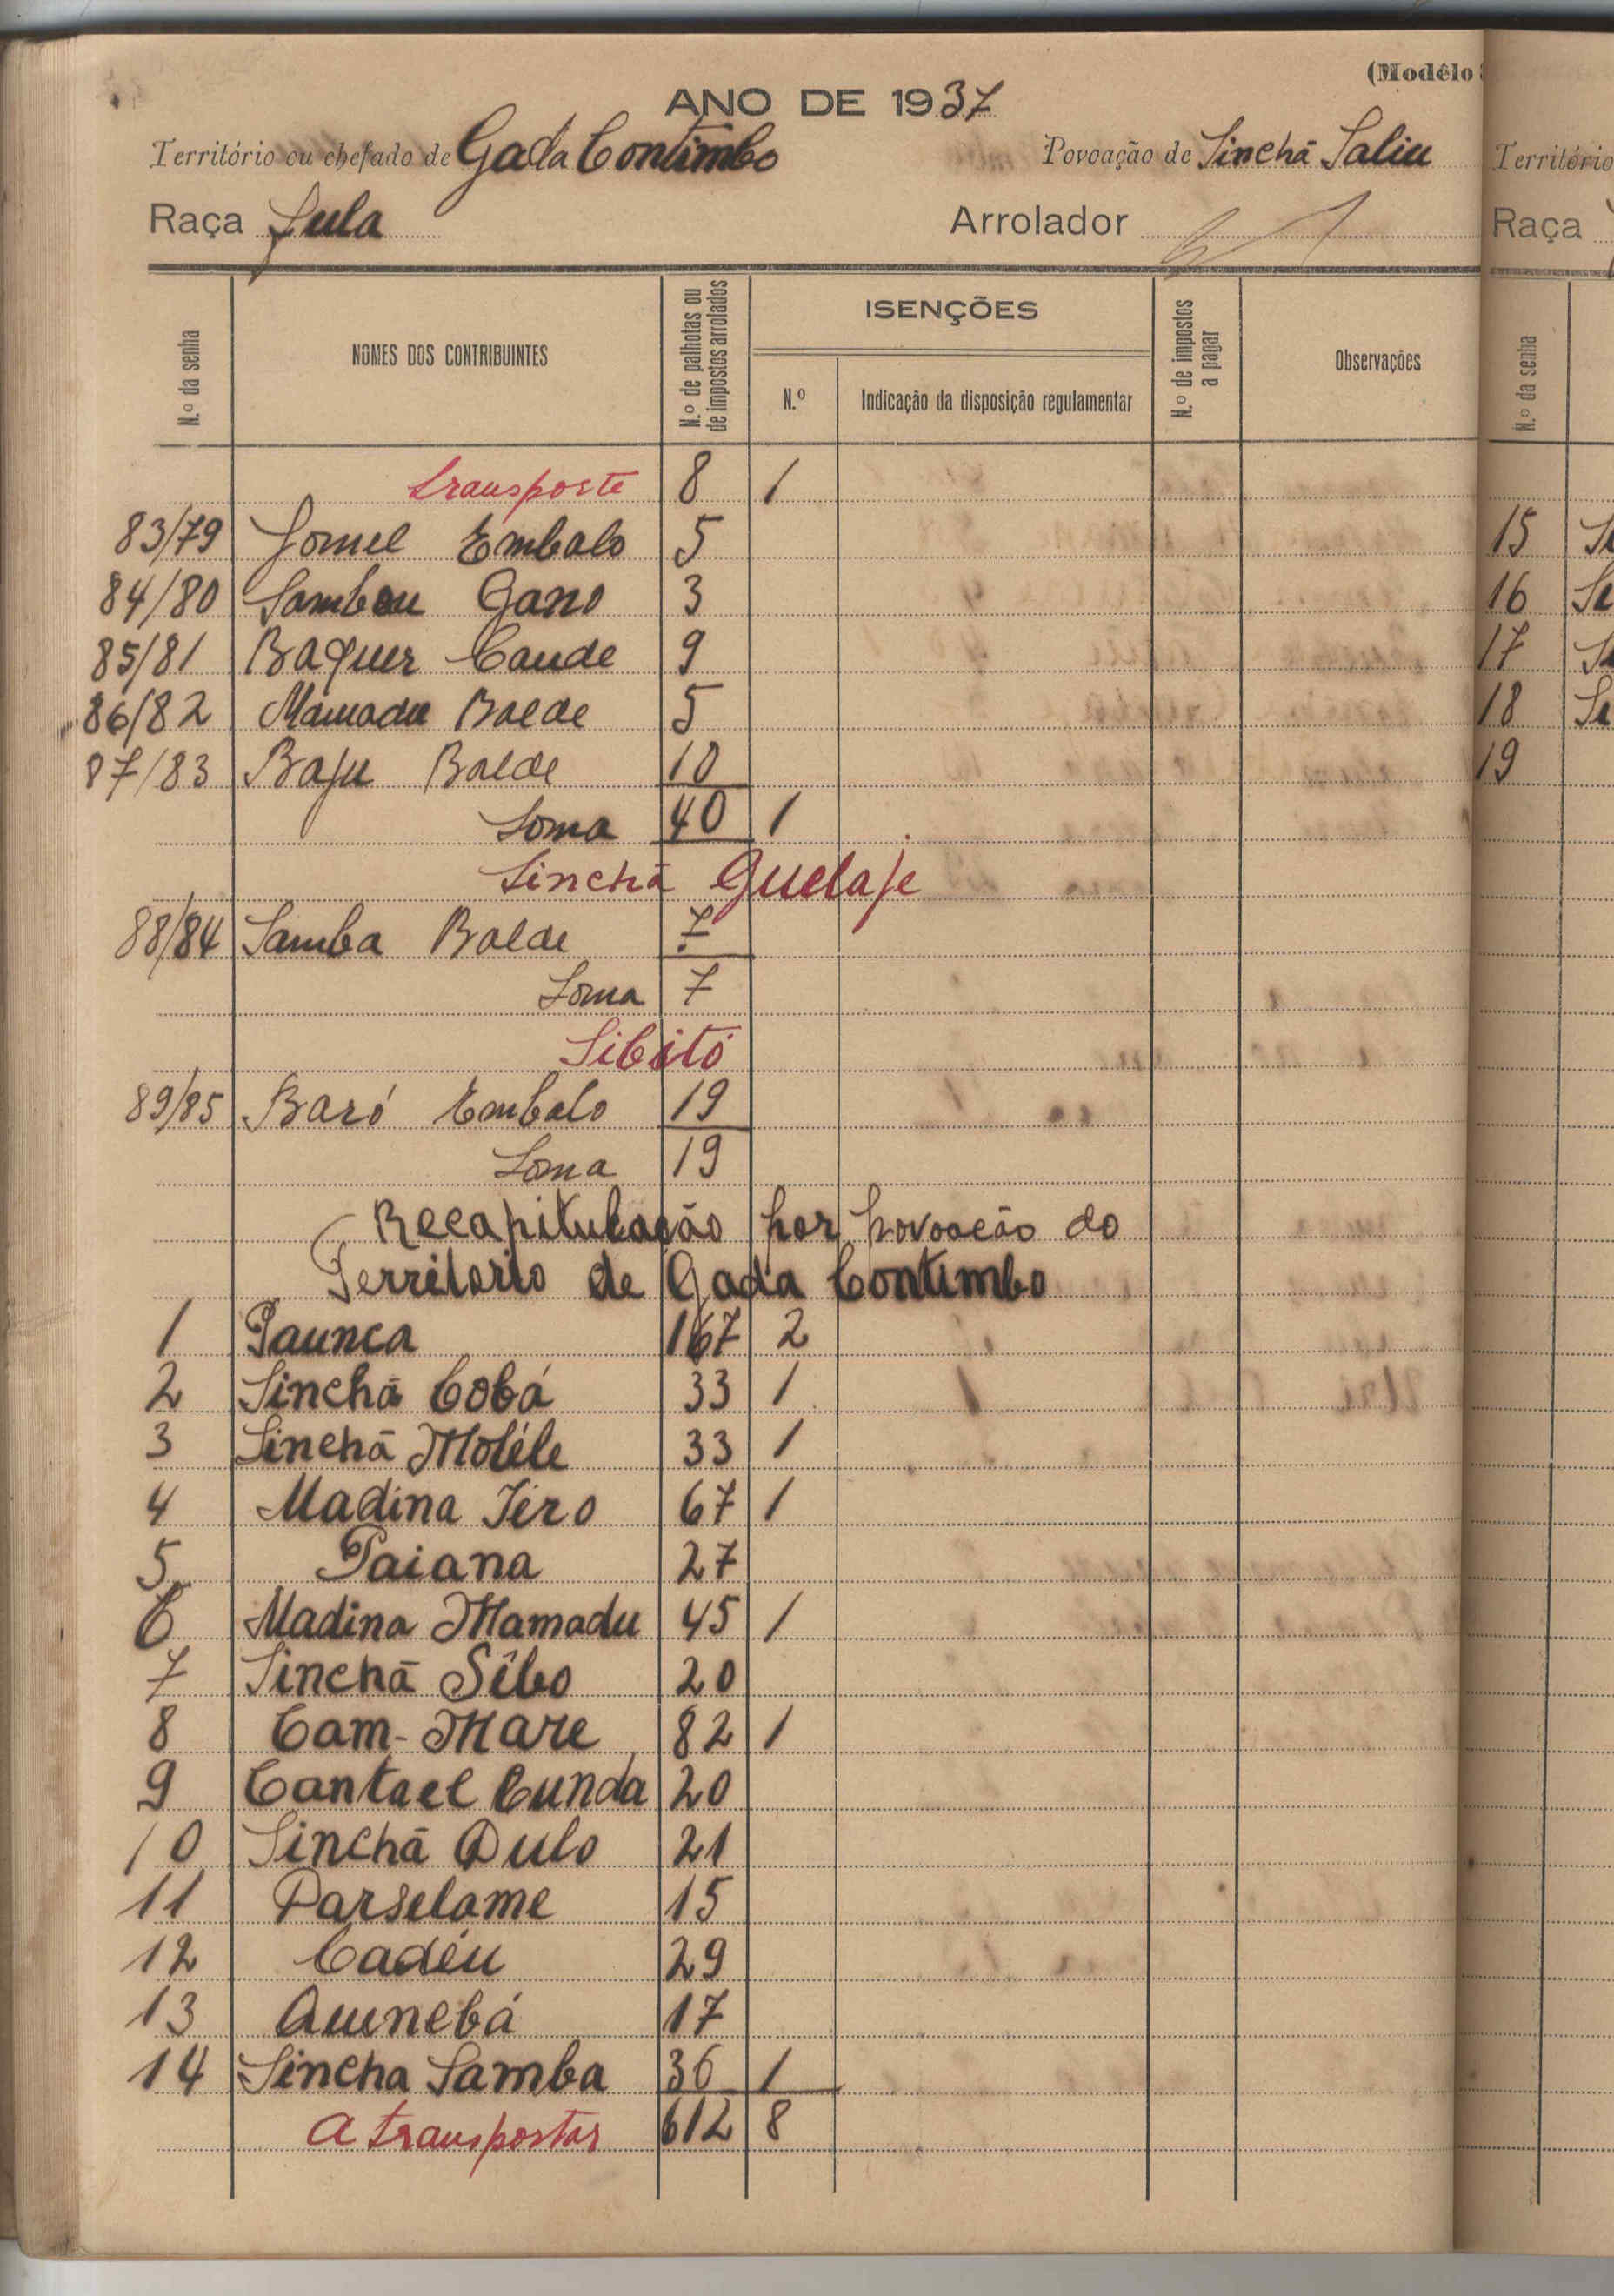 (Modêlo
ANO DE 1937
Território ou chefado de Gada Contimbo Povoação de Sinchã Saliu
Raça Fula Arrolador
N.º da senha NOMES DOS CONTRIBUINTES N.º de palhotas ou de impostos arrolados ISENÇÕES N.º Indicação da disposição regulamentar N.º de impostos a pagar Observações
transporte 8 1
83/79 Jomel Embalo 5
84/80 Sambou Gano 3
85/81 Baquer Cande 9
86/82 Mamadu Balde 5
87/83 Baju Balde 10
Soma 40 1
Sinchã Guelaje
88/84 Samba Balde 7
Soma 7
Sibitó
89/85 Baró Embalo 19
Soma 19
Recapitulação por povoação do
Territorio de Gada Contimbo
1 Paunca 167 2
2 Sinchã Cobá 33 1
3 Sinchã Moléle 33 1
4 Madina Iéro 67 1
5 Paiana 27
6 Madina Mamadu 45 1
7 Sinchã Sibo 20
8 Cam-Mare 82 1
9 Cantael Cunda 20
10 Sinchã Dulo 21
11 Parselame 15
12 Cadéu 29
13 Quinebá 17
14 Sincha Samba 36 1
a transportar 612 8
Território
Raça
N.º da senha
15
16
17
18
19